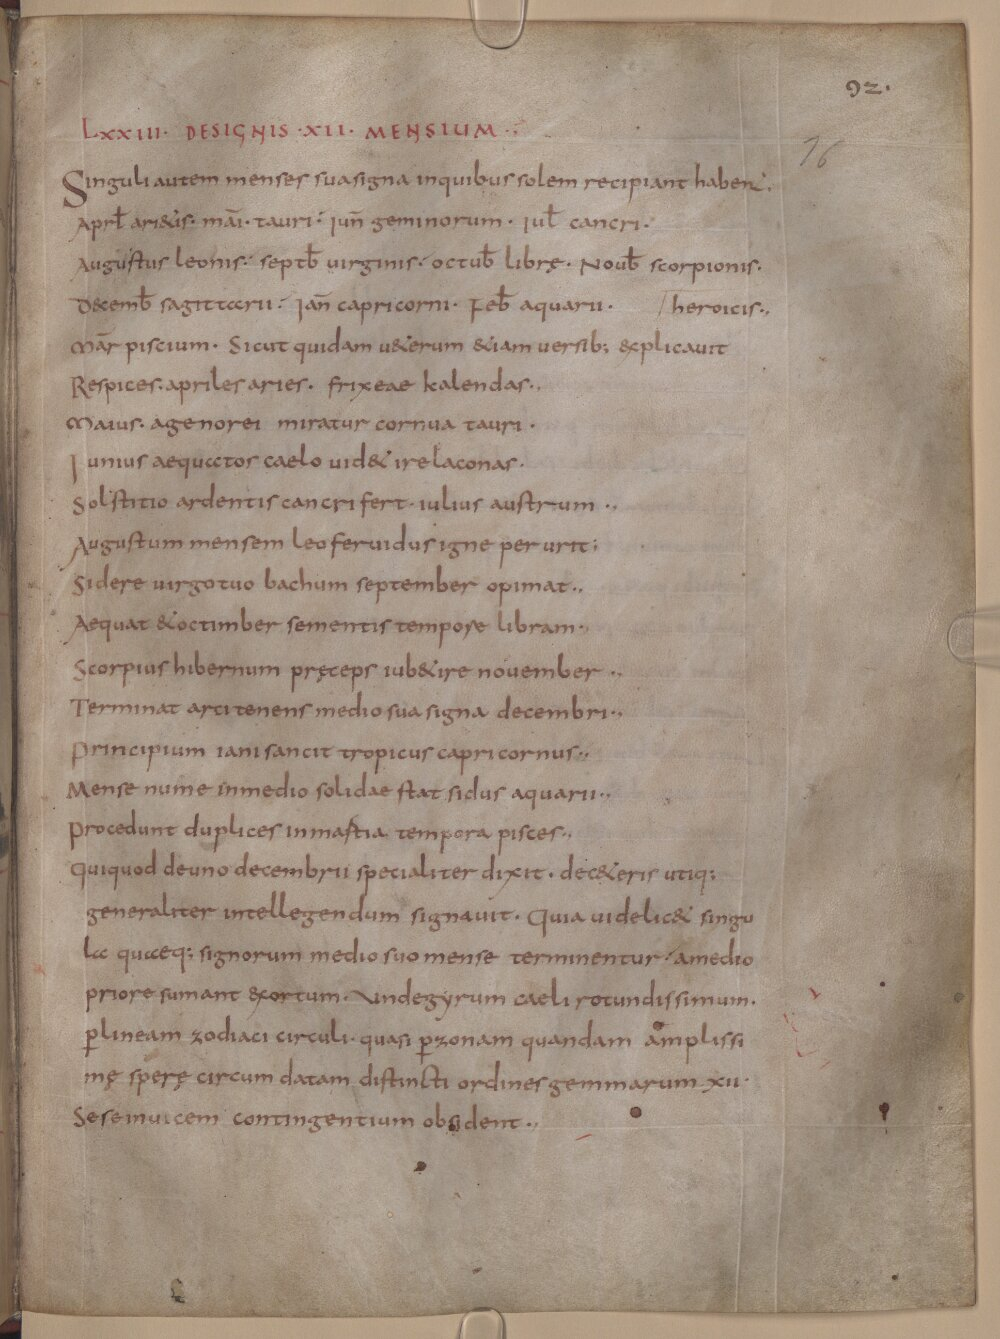 92.
76
LXXIII· DESIGNIS ·XII· MENSIUM ·,
Singuli autem menses sua signa inquibus solem recipiant haben&.
Aprł ari&is· māi· tauri· iuñ geminorum· iuł cancri·
Augustus leonis· septb̄ virginis· octub̄ librę· Noub̄ scorpionis·
D&emb̄ sagittarii· iañ capricorni· Feb̄ aquarii· heroicis·,
mār̄ piscium· Sicut quidam u&erum &iam versib; &plicauit
Respices· apriles aries· frixeae kalendas·,
maius· agenorei miratur cornua tauri·
Iunius aequatos caelo uid& ire laconas·
Solstitio ardentis cancri fert· iulius austrum·,
Augustum mensem leo feruidus igne per urit;
Sidere virgo tuo bachum september opimat·,
Aequat & octimber sementis tempore libram·,
Scorpius hibernum pręceps iub& ire november·,
Terminat arcitenens medio sua signa decembri·,
Principium iani sancit tropicus capricornus·,
Mense nume inmedio solidae stat sidus aquarii·,
Procedunt duplices in mastia tempora pisces·,
Quiquod deuno decembrii specialiter dixit· dec&eris utiq;
generaliter intellegendum signauit· Quia uidelic& singu
la quaeq; signorum medio suo mense terminentur· amedio
priore sumant &ortum· Vnde gyrum caeli rotundissimum·
ꝑ lineam zodiaci circuli· quasi ꝑ zonam quandam amplissi
mę sperę circum datam distincti ordines gemmarum XII·
Sese inuicem contingentium obsident·,